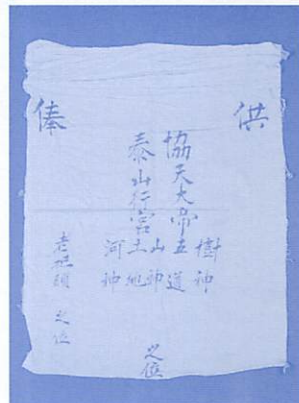 供俸
協天大帝
泰山行宮
樹神
五道
山神
土地
河神
之位
老把頭 之位